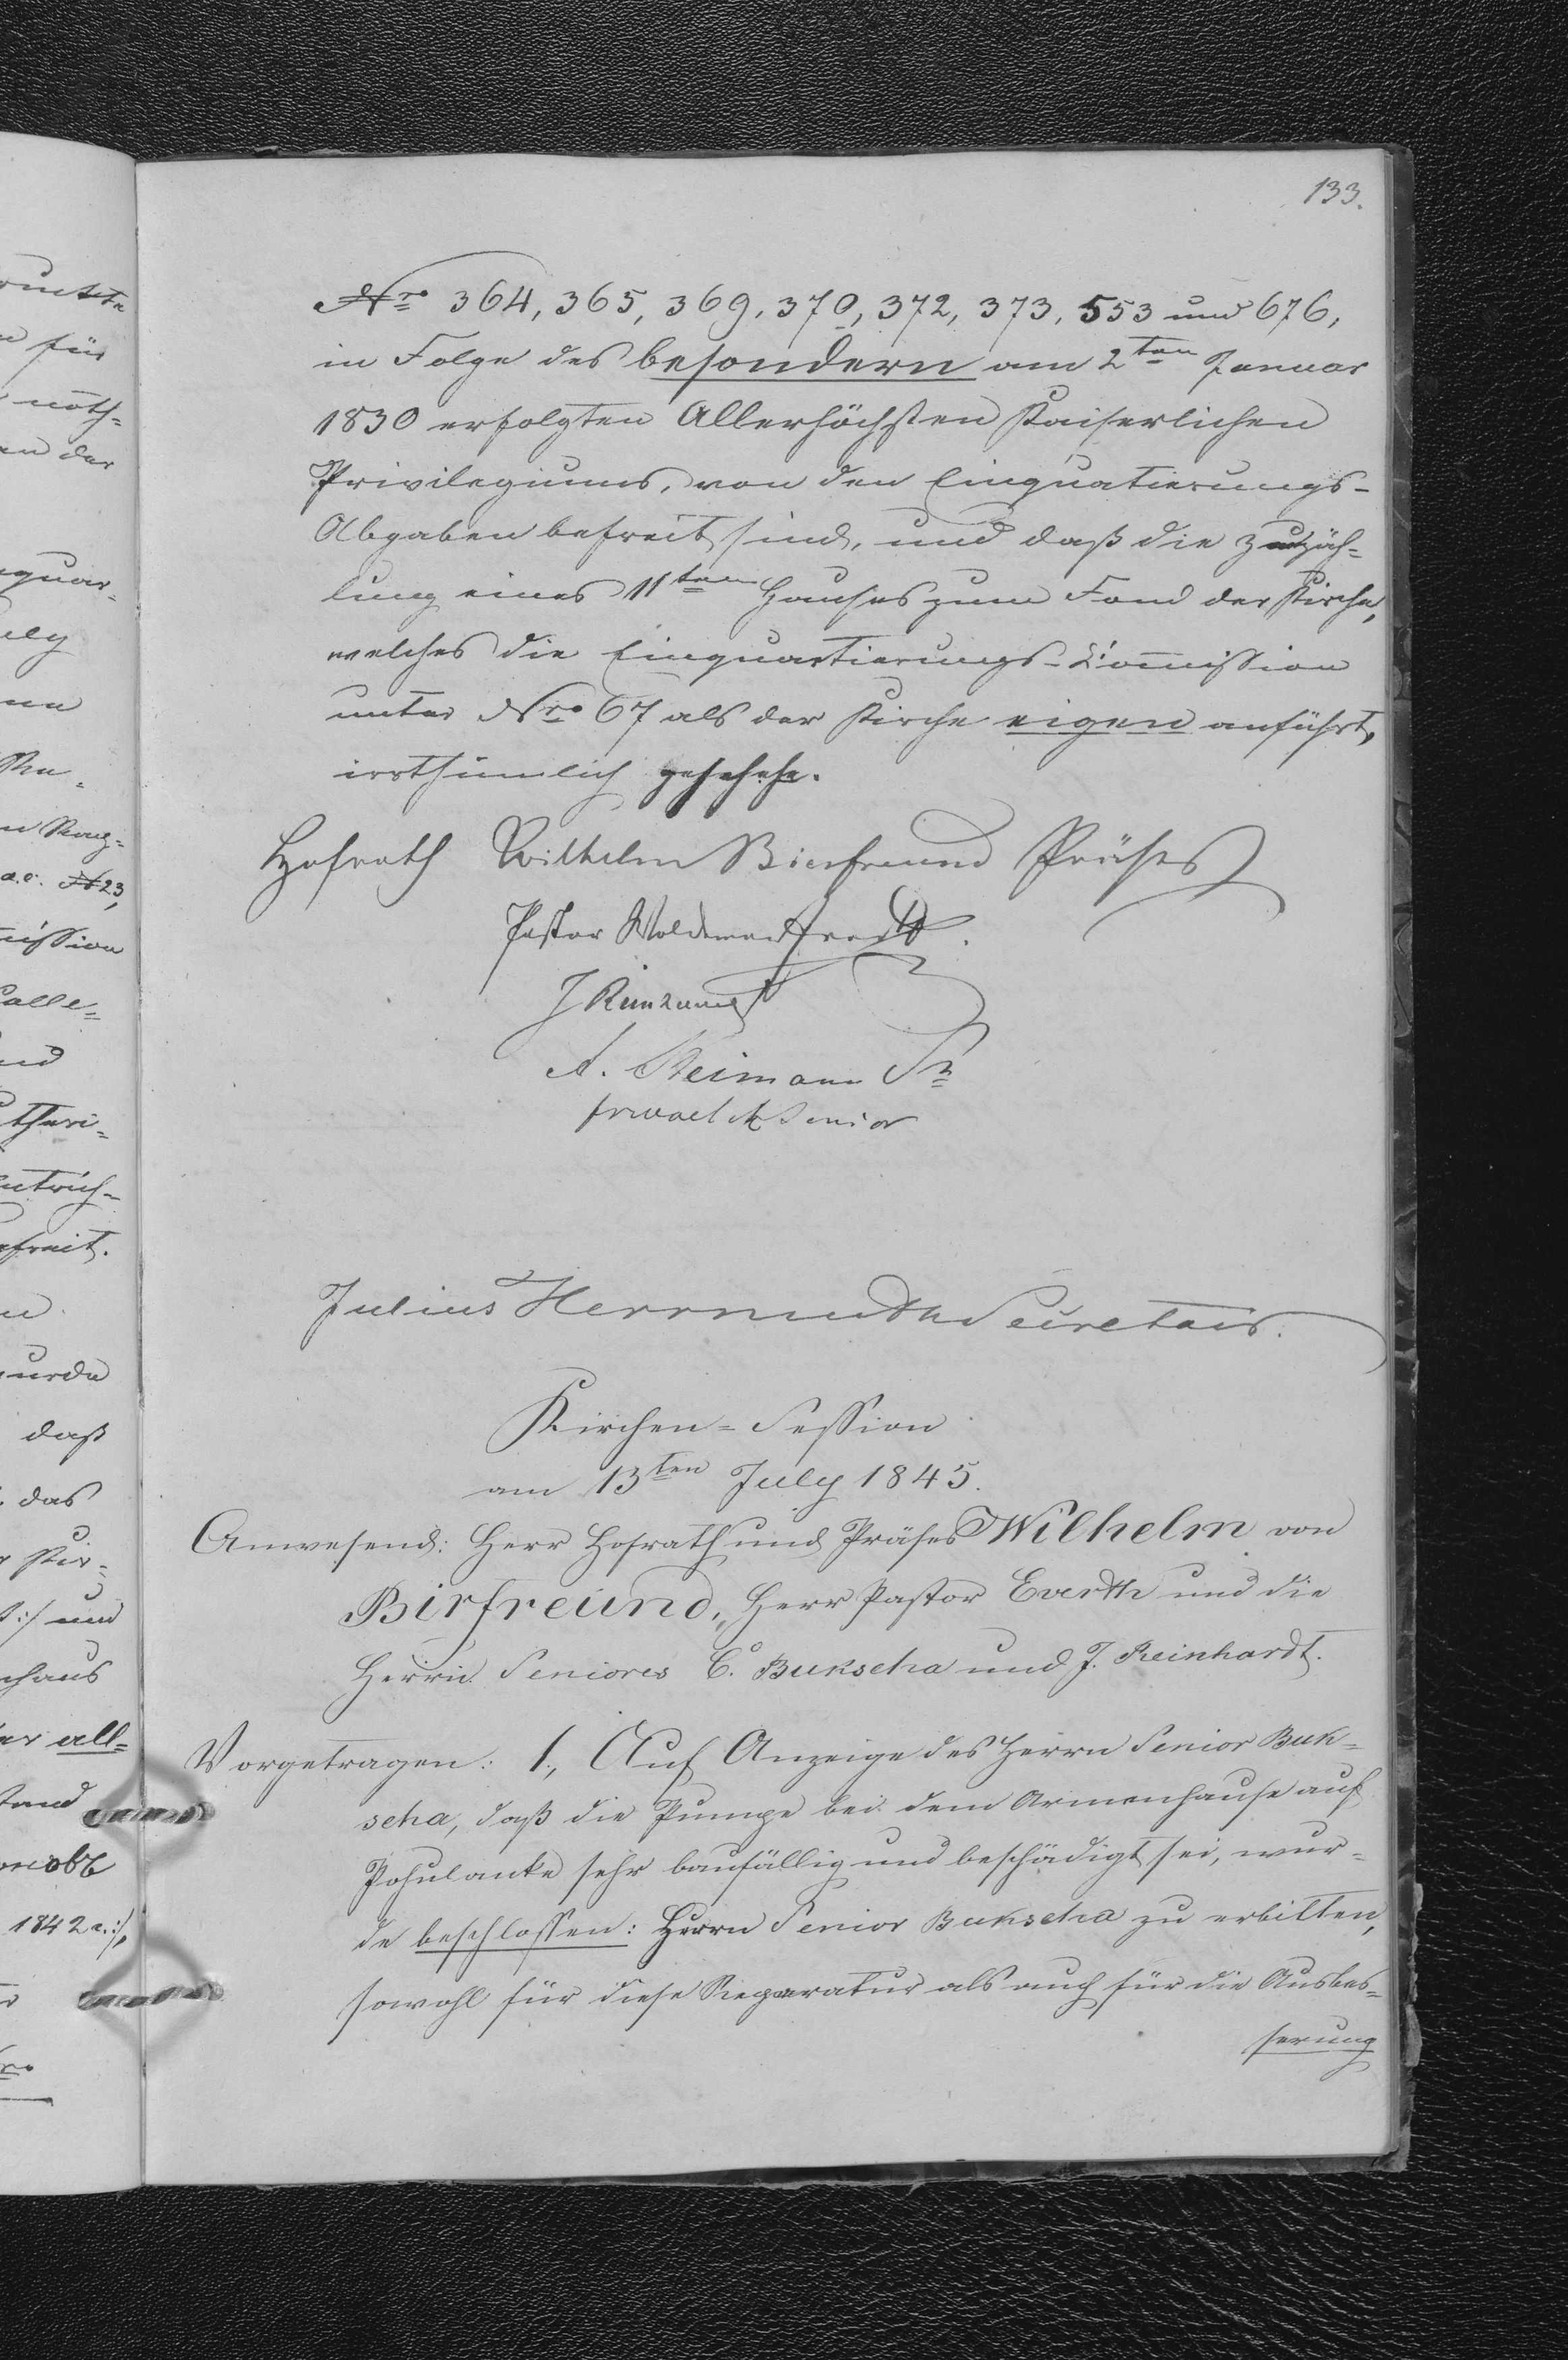 133.
Nro 364, 365, 369, 370, 372, 373, 553 und 676,
in Folge des besondern am 2ten Januar
1830 erfolgten Allerhöchsten Kaiserlichen
Privilegiums, von den Einquatierungs-
Abgaben befreit sind, und daß die Zuzäh-
lung eines 11ten Hauses zum Fond der Kirche,
welches die Einquartierungs-Commission
unter Nro 67 als der Kirche eigen anführt,
irrthümlich geschehe.
Hofrath Wilhelm Bierfreund Präses
Pastor Woldemar
J
A. Reimann Sr
Senior
Julius Herrmuth Secretair.
Kirchen-Session
am 13ten July 1845.
Anwesend: Herr Hofrath und Präses Wilhelm von
Birfreund, Herr Pastor Everth und die
Herrn Seniores C. Bukscha und J. Reinhardt.
Vorgetragen: 1., Auf Anzeige des Herrn Senior Buk-
scha, daß die Pumpe bei dem Armenhause auf
Pohulanke sehr baufällig und beschädigt sei, wur-
de beschlossen: Herrn Senior Bukscha zu erbitten,
sowohl für diese Reparatur als auch für die Ausbes-
serung
für
nöth-
en der
mission
Calle-
und
wurde
daß
das
und
all-
1842